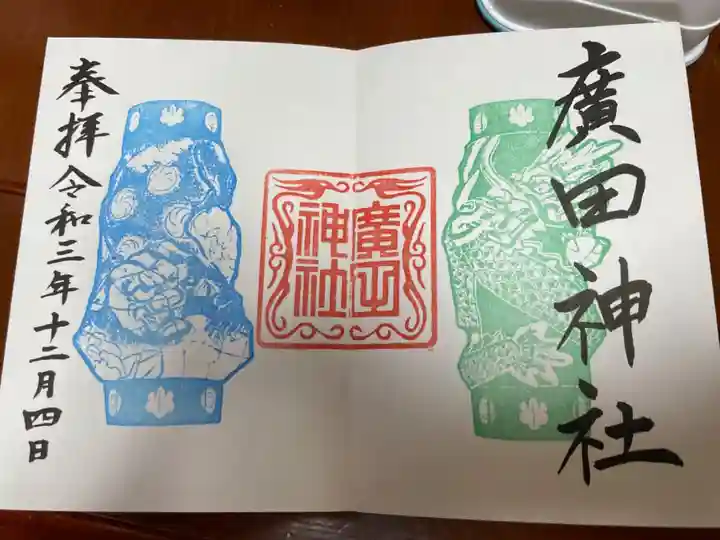 廣田神社
廣田
神社
奉拝令和三年十二月四日